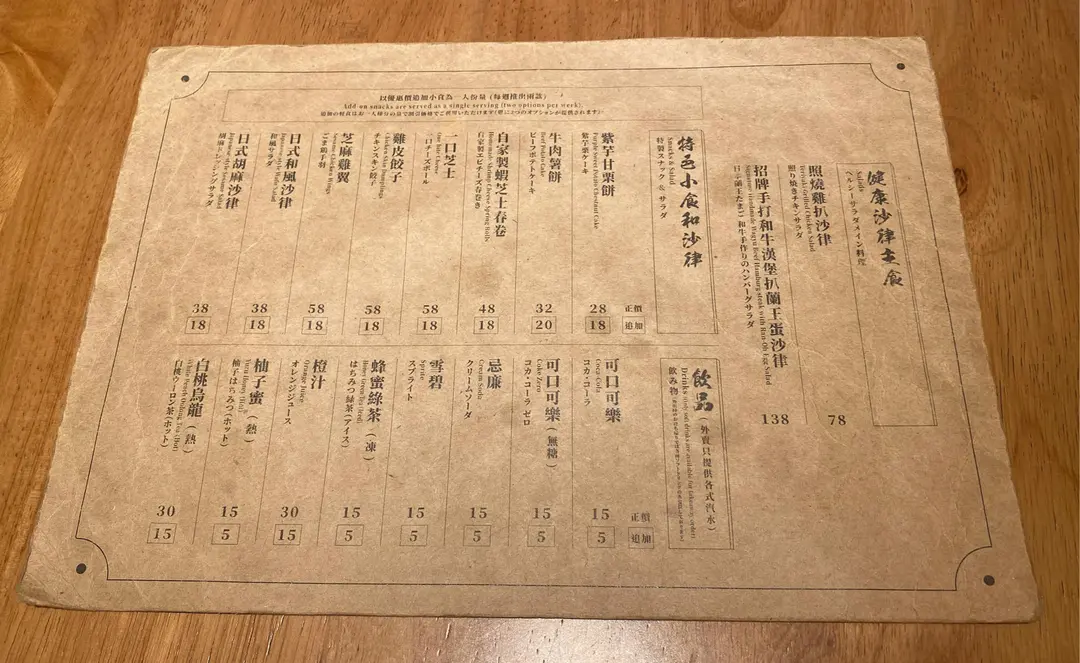 健康沙律主食
Salads
ヘルシーサラダメイン料理
照燒雞扒沙律
Teriyaki Grilled Chicken Salad
照り焼きチキンサラダ
78
招牌手打和牛漢堡扒蘭王蛋沙律
Signature Handmade Wagyu Beef Hamburg steak with Ran-Oh Egg Salad
和牛手作りのハンバーグサラダ
138
以優惠價追加小食為一人份量（每週推出兩款）
Add-on snacks are served as a single serving (two options per week).
特色小食和沙律
Snacks & Salad
特製スナック & サラダ
正價
追加
紫芋甘栗餅
Purple Sweet Potato Chestnut Cake
紫芋栗ケーキ
28
18
牛肉薯餅
Beef Potato Cake
ビーフポテトケーキ
32
20
自家製蝦芝士春卷
Homemade Shrimp Cheese Spring Rolls
自家製エビチーズ春巻き
48
18
一口芝士
One bite Cheese
一口チーズボール
58
18
雞皮餃子
Chicken Skin Dumplings
チキンスキン餃子
58
18
芝麻雞翼
Sesame Chicken Wings
ごま鶏手羽
58
18
日式和風沙律
Japanese-style Wafu Salad
和風サラダ
38
18
日式胡麻沙律
Japanese-style Sesame Salad
胡麻ドレッシングサラダ
38
18
飲品（外賣只提供各式汽水）
飲み物
正價
追加
可口可樂
Coca-Cola
コカ・コーラ
15
5
可口可樂（無糖）
Coke Zero
コカ・コーラ ゼロ
15
5
忌廉
Cream Soda
クリームソーダ
15
5
雪碧
Sprite
スプライト
15
5
蜂蜜綠茶（凍）
Honey Green Tea (Iced)
はちみつ緑茶(アイス)
15
5
橙汁
Orange Juice
オレンジジュース
30
15
柚子蜜（熱）
Yuzu Honey (Hot)
柚子はちみつ(ホット)
15
5
白桃烏龍（熱）
White Peach Oolong Tea (Hot)
白桃ウーロン茶(ホット)
30
15